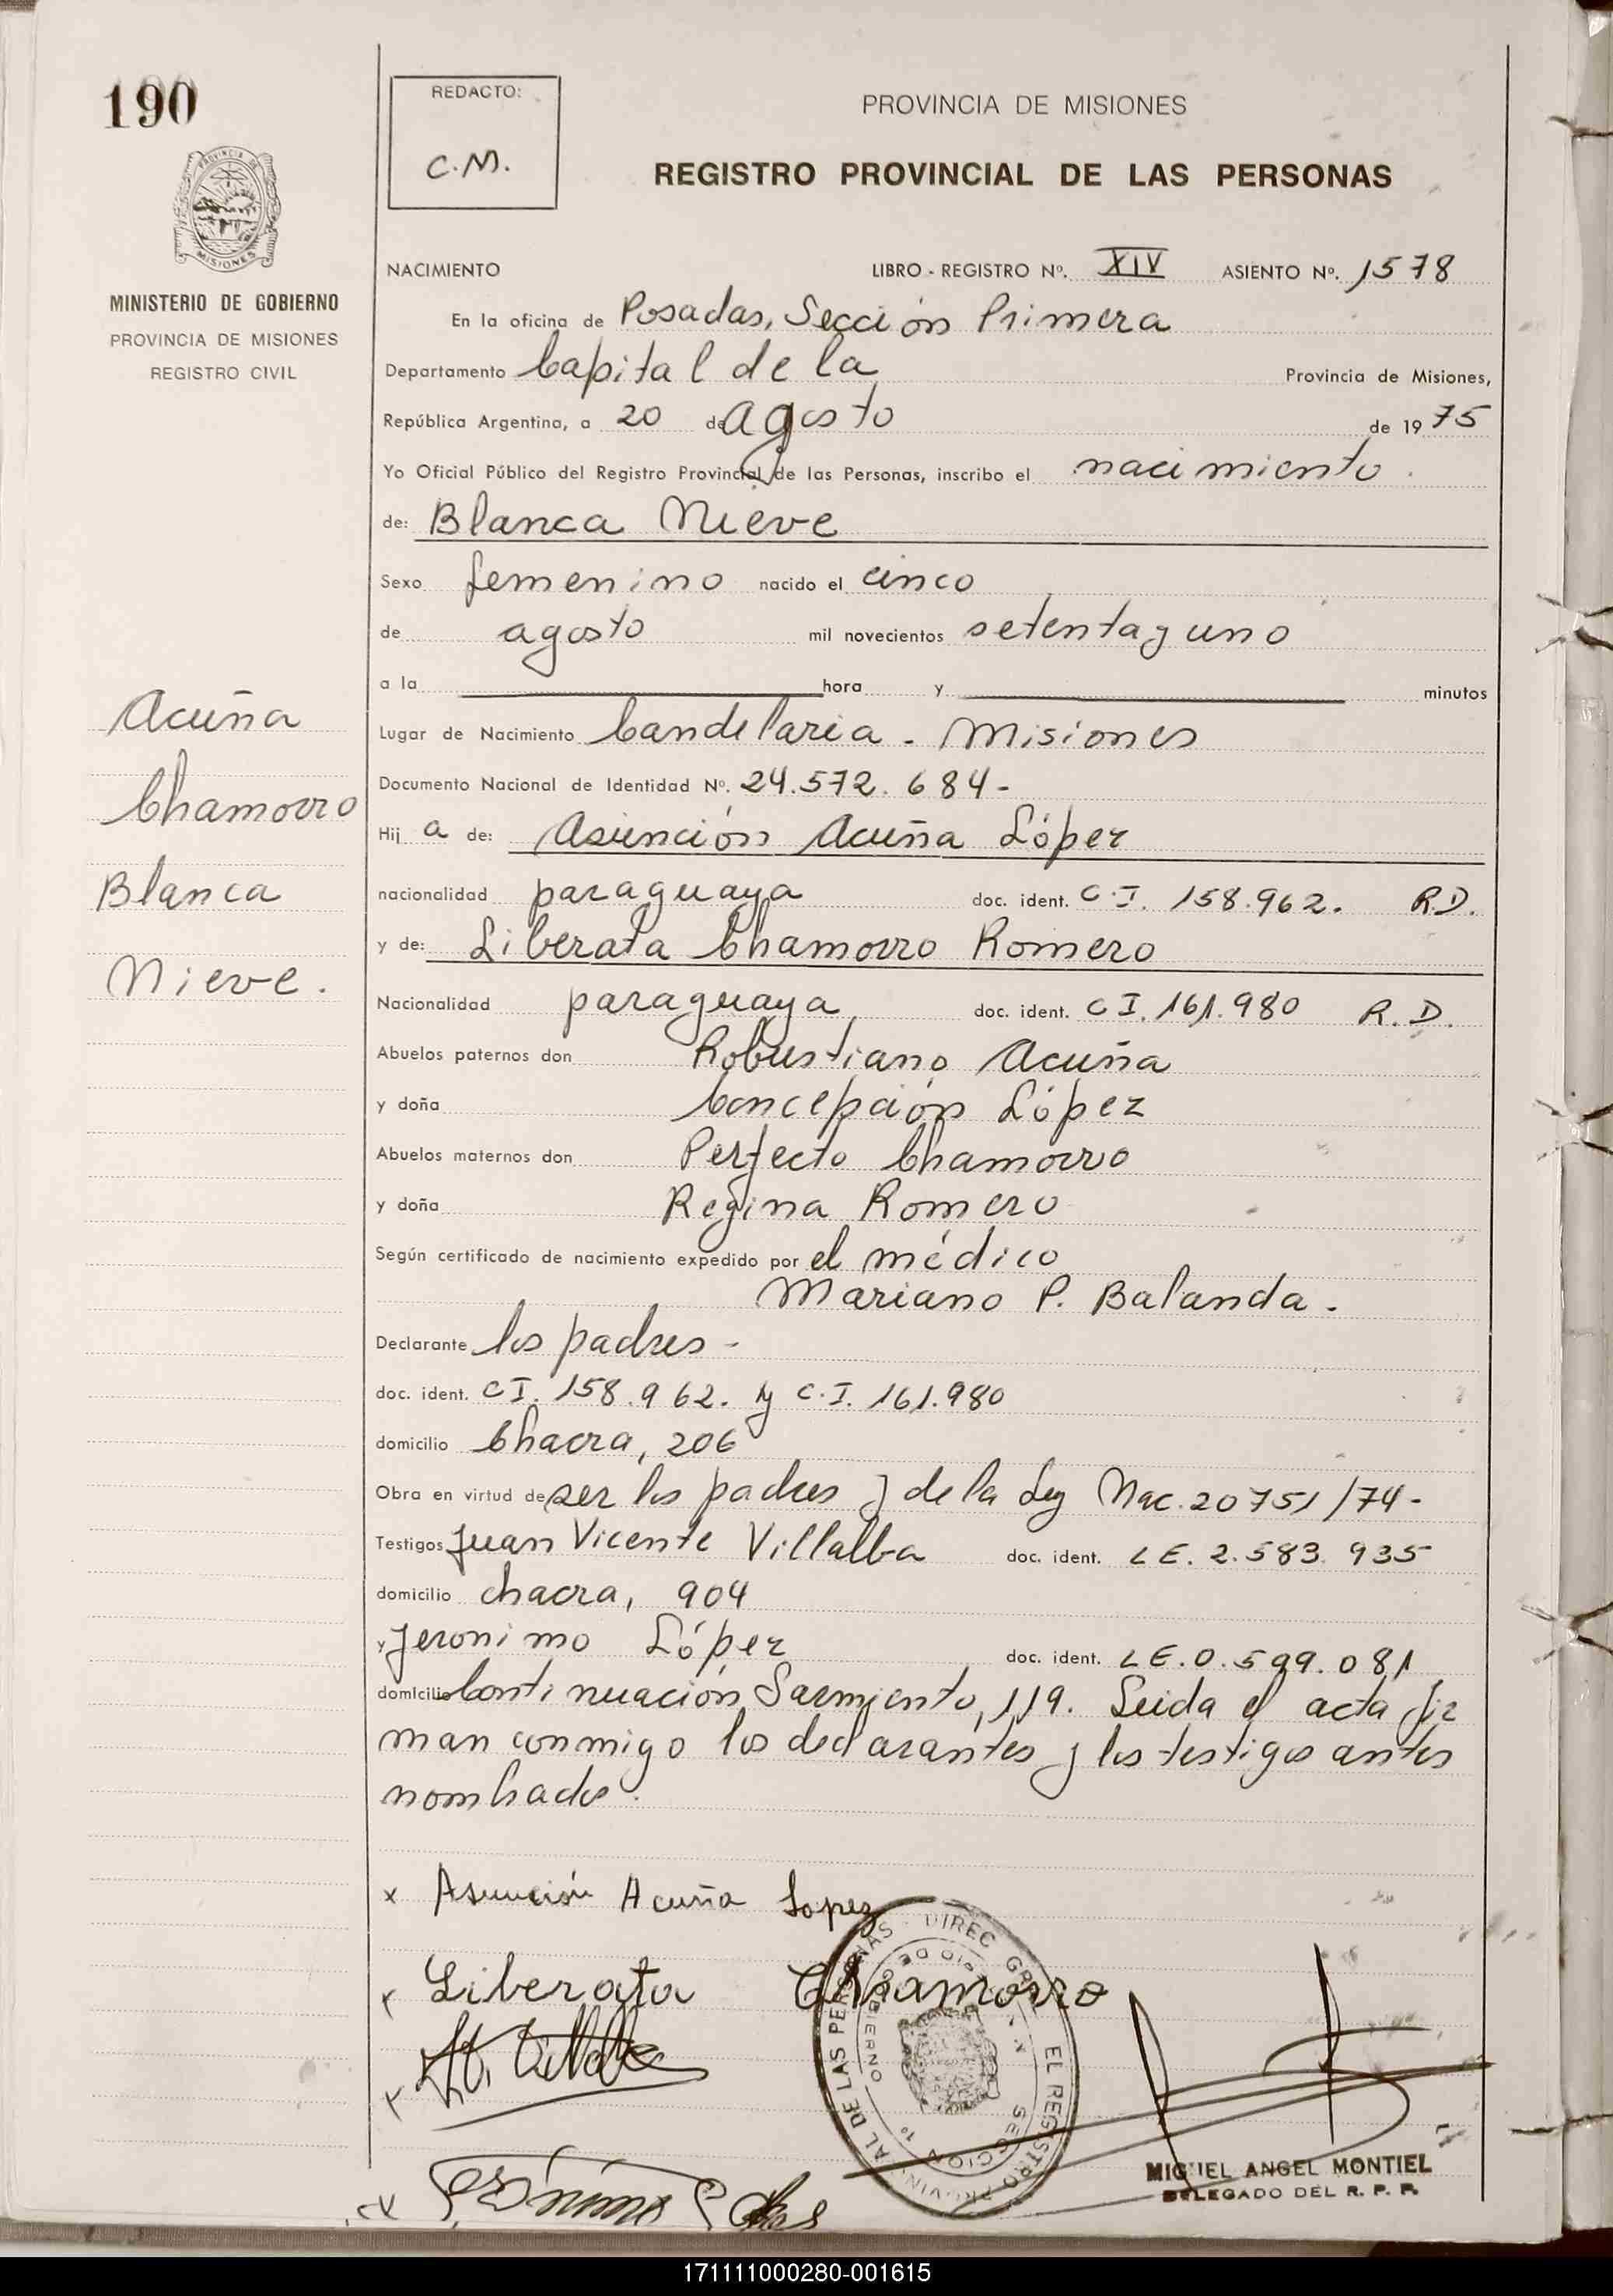 190
PROVINCIA DE
MISIONES
MINISTERIO DE GOBIERNO
PROVINCIA DE MISIONES
REGISTRO CIVIL
REDACTO:
C.M.
PROVINCIA DE MISIONES
REGISTRO PROVINCIAL DE LAS PERSONAS
NACIMIENTO LIBRO - REGISTRO Nº. XIV ASIENTO Nº. 1578
En la oficina de Posadas, Sección Primera
Departamento Capital de la Provincia de Misiones,
República Argentina, a 20 de agosto de 19 75
Yo Oficial Público del Registro Provincial de las Personas, inscribo el nacimiento.
de: Blanca Nieve
Sexo femenino nacido el cinco
de agosto mil novecientos setenta y uno
a la hora y minutos
Lugar de Nacimiento Candelaria - Misiones
Documento Nacional de Identidad Nº. 24.572.684-
Hij a de: Asunción Acuña López
nacionalidad paraguaya doc. ident. C.I. 158.962. R.D.
y de: Liberata Chamorro Romero
Nacionalidad paraguaya doc. ident. C I. 161.980 R. D.
Abuelos paternos don Robustiano Acuña
y doña Concepción López
Abuelos maternos don Perfecto Chamorro
y doña Regina Romero
Según certificado de nacimiento expedido por el médico
Mariano P. Balanda.
Declarante los padres -
doc. ident. C I. 158.962. y C.I. 161.980
domicilio Chacra, 206
Obra en virtud de ser los padres y de la Ley Nac. 20751/74-
Testigos Juan Vicente Villalba doc. ident. L E. 2.583.935
domicilio chacra, 904
y Jeronimo López doc. ident. L E. 0.599.081
domicilio Continuación Sarmiento, 119. Leida el acta fir
man conmigo los declarantes y los testigos antes
nombrados.
Acuña
Chamorro
Blanca
Nieve.
x Asunción Acuña Lopez
x Liberata Chamorro
x
x
SECCION 1º
MIGUEL ANGEL MONTIEL
DELEGADO DEL R. P. P.
171111000280-001615